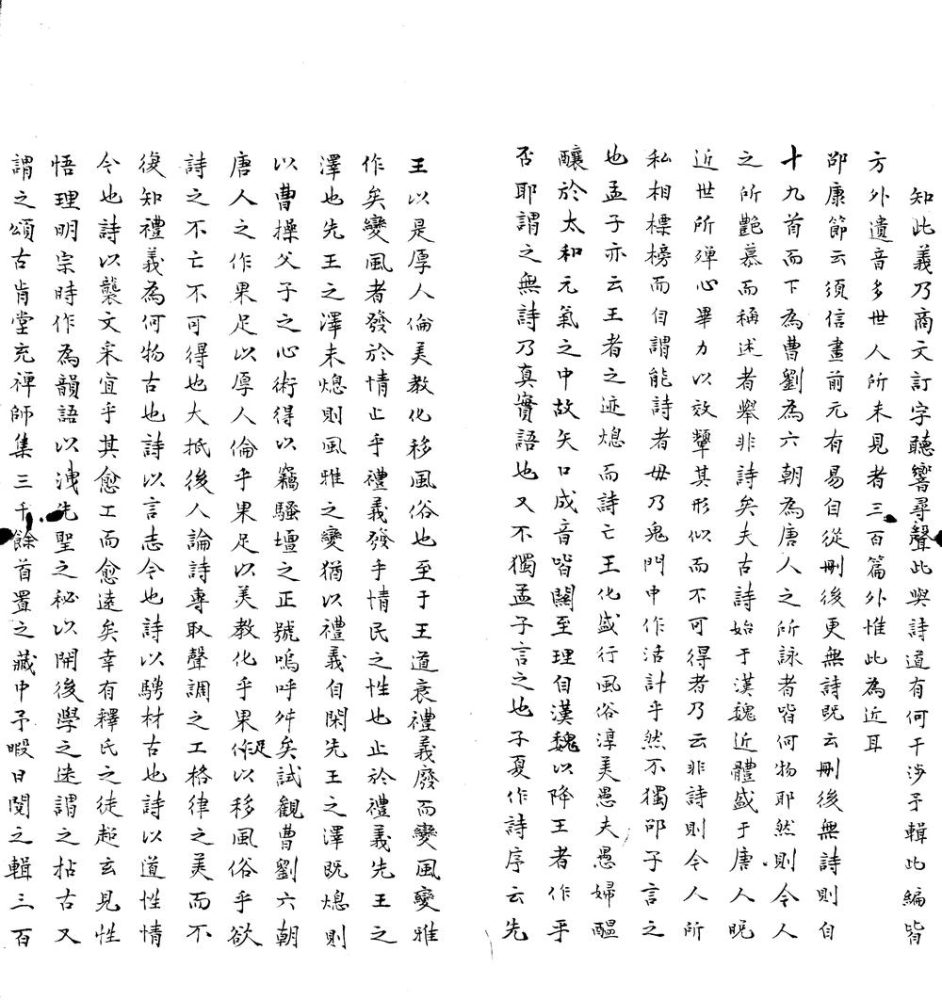 知此義乃商文訂字聽響尋聲此與詩道有何干涉予輯此編皆
方外遺音多世人所未見者三百篇外惟此為近耳
邵康節云須信畫前元有易自從刪後更無詩既云刪後無詩則自
十九首而下為曹劉為六朝為唐人之所詠者皆何物耶然則今人
之所艷慕而稱述者舉非詩矣夫古詩始于漢魏近體盛于唐人昵
近世所殫心畢力以效顰其形似而不可得者乃云非詩則今人所
私相標榜而自謂能詩者毋乃鬼門中作活計乎然不獨邵子言之
也孟子亦云王者之迹熄而詩亡王化盛行風俗淳美愚夫愚婦醞
釀於太和元氣之中故矢口成音皆關至理自漢魏以降王者作乎
否耶謂之無詩乃真實語也又不獨孟子言之也子夏作詩序云先
王以是厚人倫美教化移風俗也至于王道衰禮義廢而變風變雅
作矣變風者發於情止乎禮義發乎情民之性也止於禮義先王之
澤也先王之澤未熄則風雅之變猶以禮義自閑先王之澤既熄則
以曹操父子之心術得以竊騷壇之正號嗚呼舛矣試觀曹劉六朝
唐人之作果足以厚人倫乎果足以美教化乎果足以移風俗乎欲
詩之不亡不可得也大抵後人論詩專取聲調之工格律之美而不
復知禮義為何物古也詩以言志今也詩以騁材古也詩以道性情
今也詩以襲文采宜乎其愈工而愈遠矣幸有釋氏之徒超玄見性
悟理明宗時作為韻語以洩先聖之秘以開後學之迷謂之拈古又
謂之頌古肯堂充禪師集三千餘首置之藏中予暇日閱之輯三百